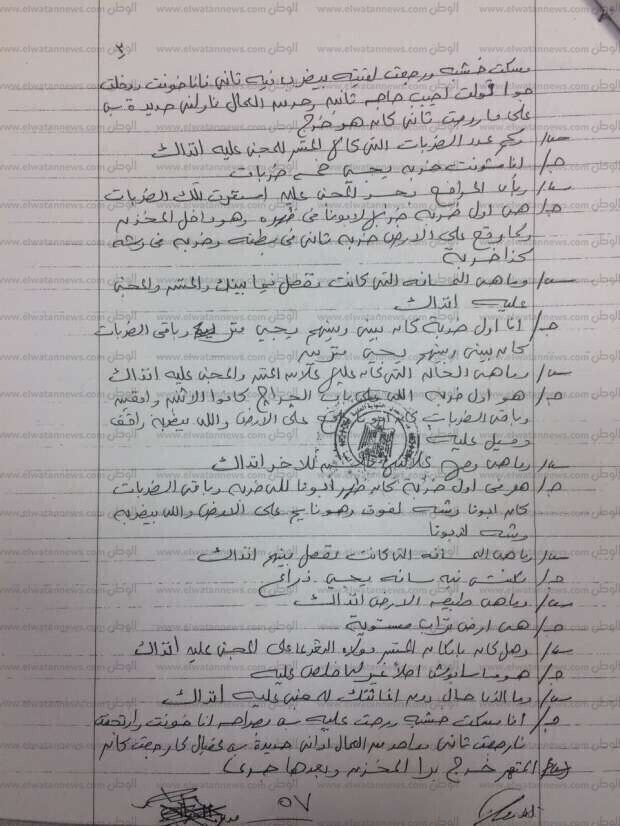 مسكت خشبه ورجعت لقيته بيضرب فيه تاني فانا خوفت ودخلت
جوا قولت اجيب حاجه تانيه وحد من العمال ناولني حديدة بس
على ما روحت تاني كان هو خرج
س/ وكم عدد الضربات التي كالها المتهم للمجني عليه آنذاك
ج/ انا شوفت ضربه يجي خمس ضربات
س/ وبأي المواضع بجسد المجني عليه استقرت تلك الضربات
ج/ هي اول ضربه ضربها لابونا في ظهره وهو داخل المخزن
ولما وقع على الارض ضربه تاني في بطنه وضربه في وشه
كذا ضربة
س/ وما هي المسافه التي كانت تفصل فيما بينك والمتهم والمجني
عليه آنذاك
ج/ انا اول ضربة كان بيني وبينهم يجي متر وباقي الضربات
كان بيني وبينهم يجي مترين
س/ وما هي الحاله التي كان عليها كلا من المتهم والمجني عليه آنذاك
ج/ هو اول ضربه اللي على باب الجراج كانوا الاتنين واقفين
وباقي الضربات كان على الارض واللي بيضربه واقف
وميل عليه
س/ وما هي وضع كلا للاخر آنذاك
ج/ هو في اول ضربة كان ظهر ابونا للي ضربه وباقي الضربات
كان ابونا وشه لفوق وهو نايم على الارض واللي بيضربه
وشه لابونا
س/ وما هي المسافه التي كانت تفصل بينهم آنذاك
ج/ مكنش فيه مسافه يجي ذراع
س/ وما هي طبيعه الارض آنذاك
ج/ هي ارض تراب مستوية
س/ وهل كان بإمكان المتهم موالاه التعدي على المجني عليه آنذاك
ج/ هو ما سابوش اصلا غير لما خلص عليه
س/ وما الذي حال دون اغاثتك للمجني عليه آنذاك
ج/ انا مسكت خشبه وروحت عليه بس بصراحه انا خوفت وارتجفت
فرجعت تاني وواحد من العمال اداني حديدة بس عقبال ما رجعت كان
المتهم خرج برا المخزن وبعدها جري
٥٧